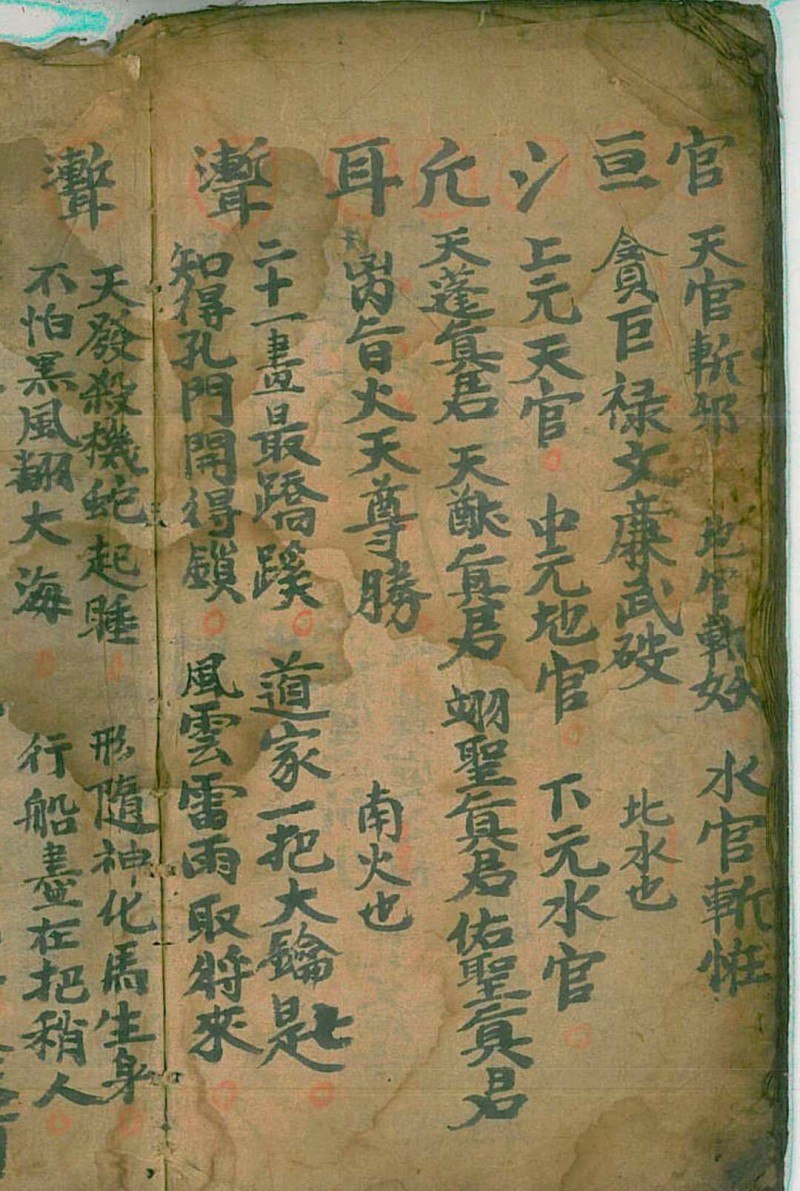 官 天官斬邪 地官斬妖 水官斬恠
亘 貪巨禄文廉武破 北水也
氵 上元天官 中元地官 下元水官
天蓬真君 天猷真君 翊聖真君 佑聖真君
耳 火天尊勝 南火也
二十一畫最蹺蹊 道家一把大鑰匙
知得孔門開得鎖 風雲雷雨取將來
天發殺機蛇起 形隨神化馬生身
不怕黑風翻大海 行船盡在把稍人